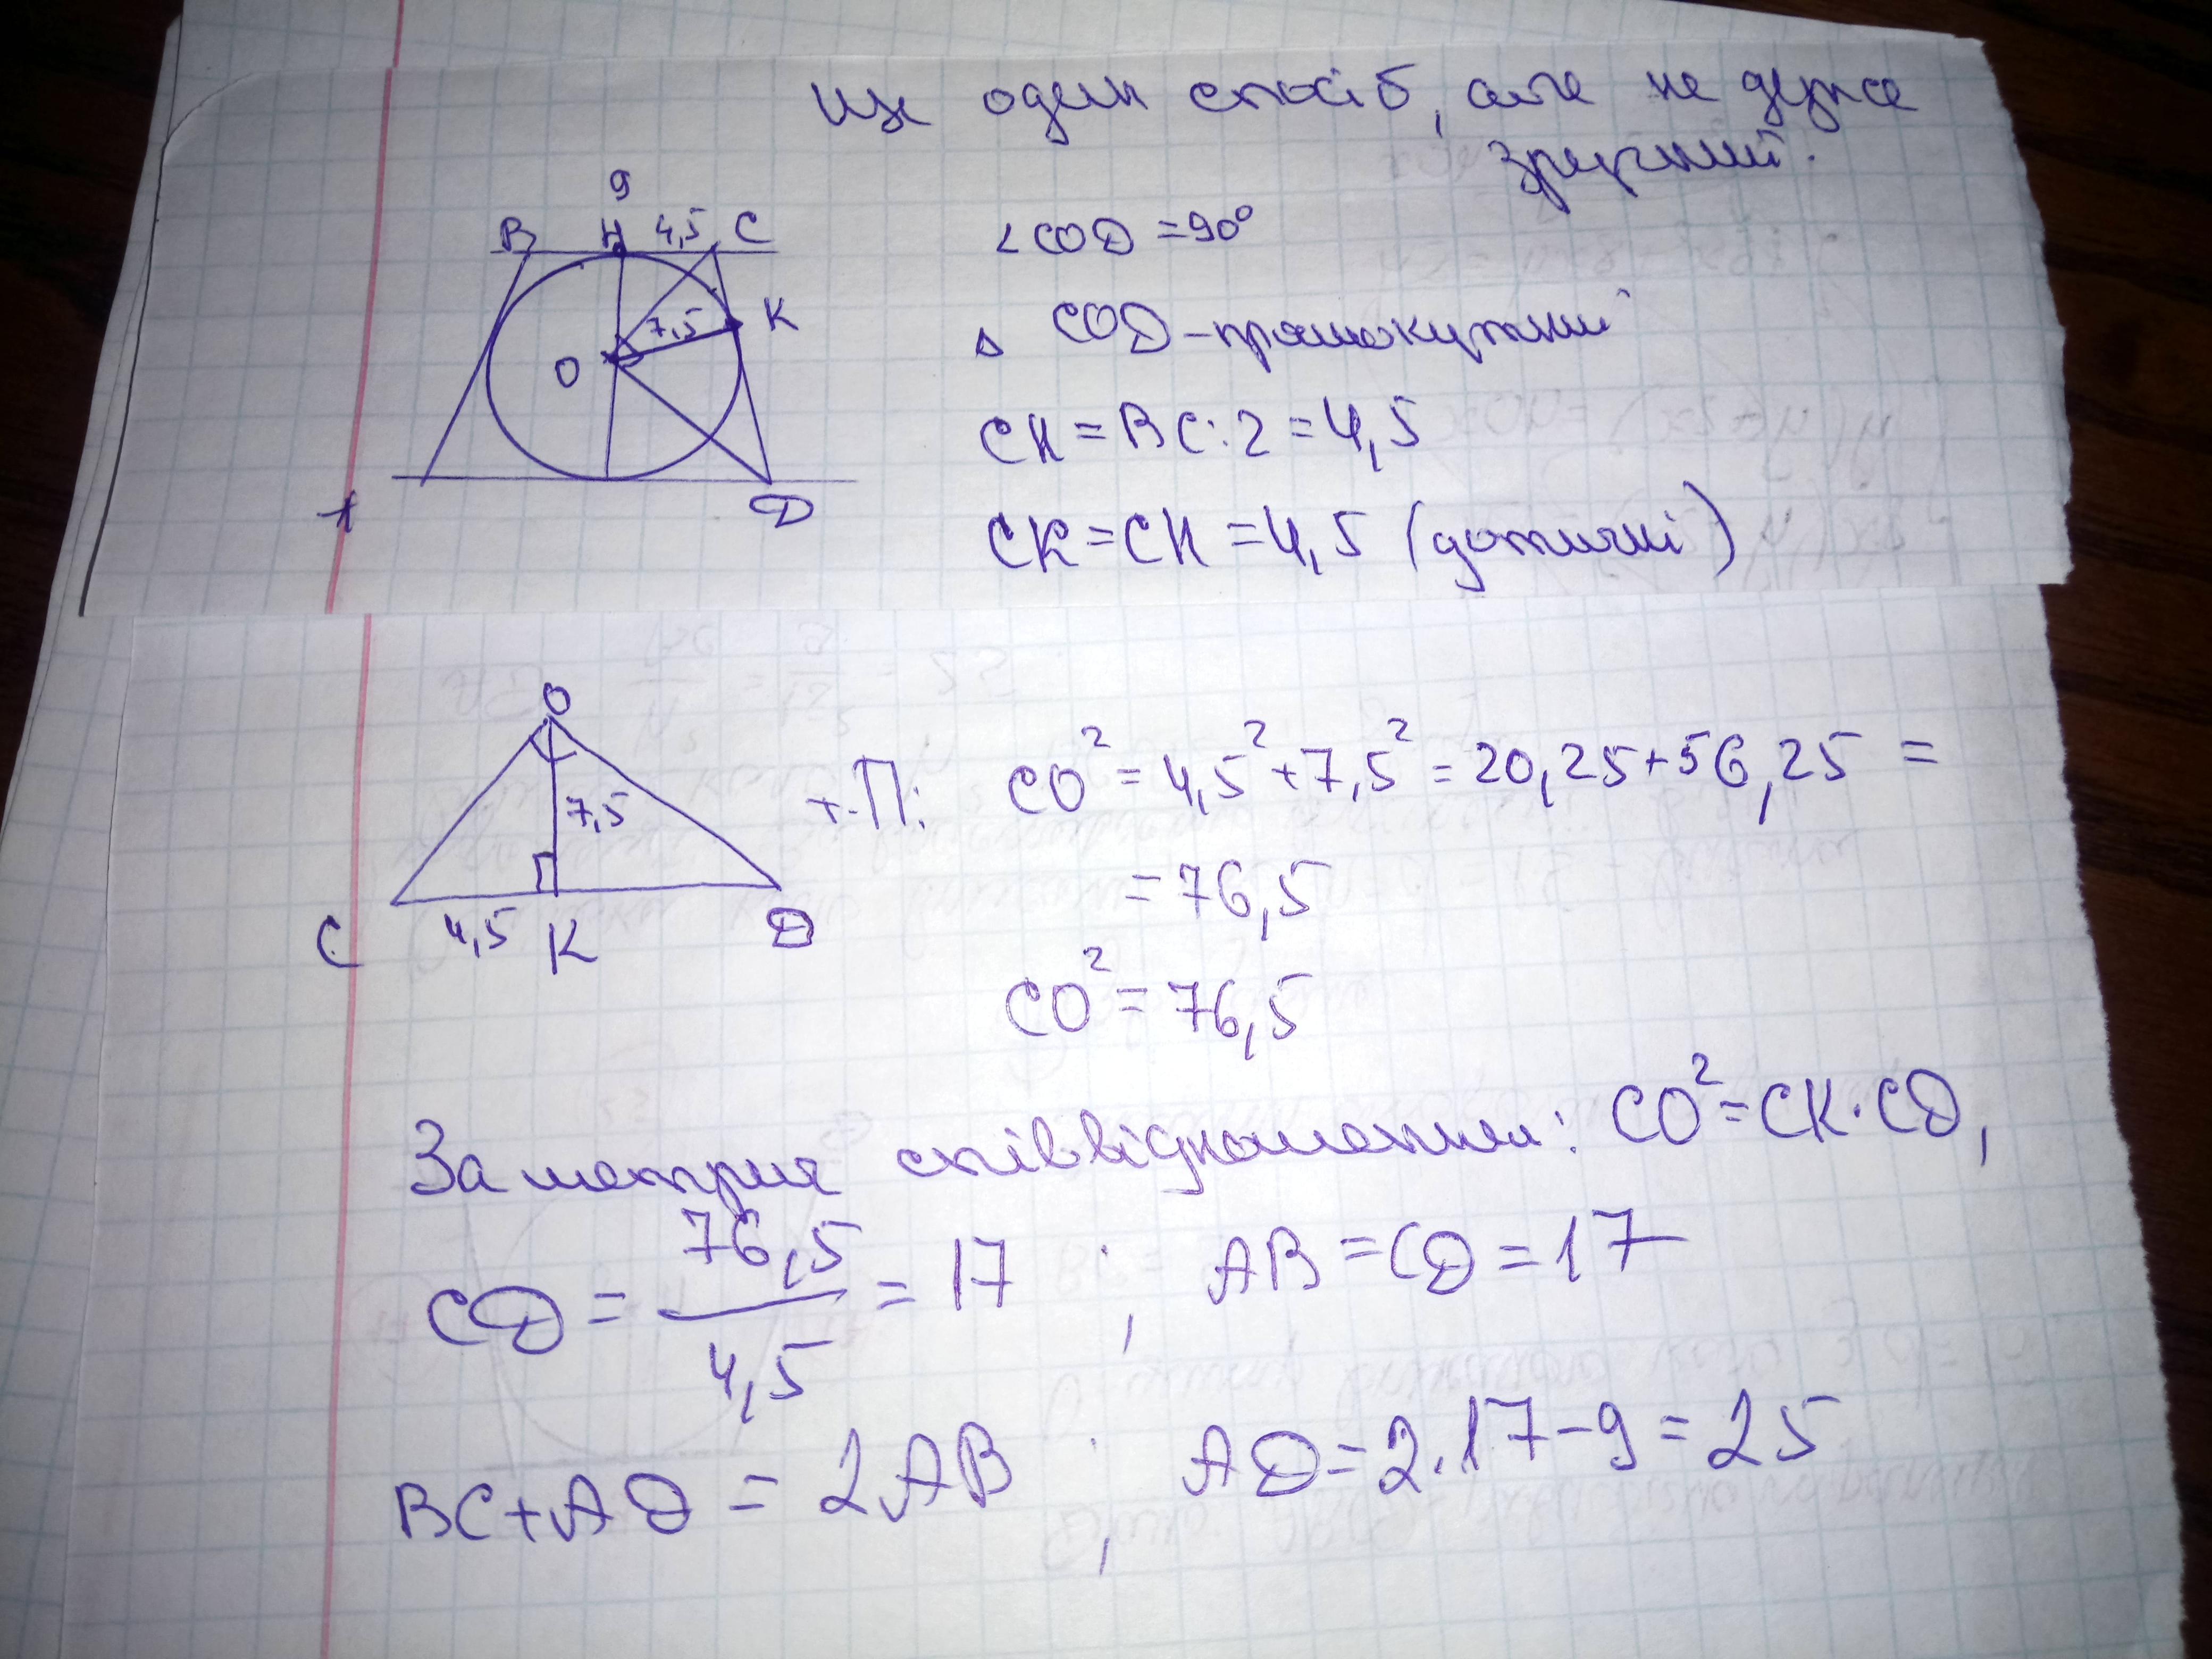 Ще один спосіб, але не дуже
зручний.
9
B H 4,5 C
7,5 K
O
A D
∠COD = 90°
△ COD - прямокутний
CH = BC : 2 = 4,5
CK = CH = 4,5 (дотичні)
O
7,5
C 4,5 K D
т.П: CO² = 4,5² + 7,5² = 20,25 + 56,25 =
= 76,5
CO² = 76,5
За метрич співвідношенням: CO² = CK · CD,
CD = 76,5 / 4,5 = 17 ; AB = CD = 17
BC + AD = 2AB ; AD = 2 · 17 - 9 = 25